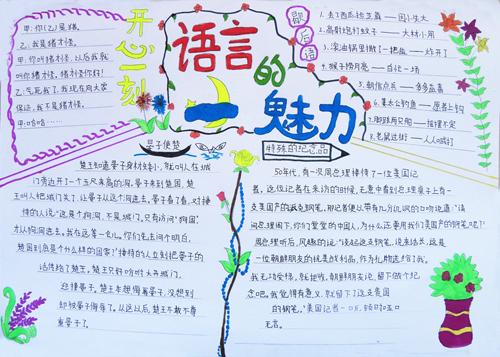 开心一刻
甲:你(乙)是猪。
乙:我是猪才怪。
甲:你叫猪才怪,以后我就
叫你猪才怪,猪才怪你好!
乙:气死我了,我现在向大家
保证,我不是猪才怪。
甲:哈哈……
语言的
魅力
歇后语
1、丢了西瓜捡芝麻——因小失大
2、高射炮打蚊子——大材小用
3、滚油锅里撒了一把盐——炸开了
4、猴子捞月亮——白忙一场
5、韩信点兵——多多益善
6、姜太公钓鱼——愿者上钩
7、脚踩两只船——摇摆不定
8、老鼠过街——人人喊打
晏子使楚
楚王知道晏子身材矮小,就叫人在城
门旁边开了一个五尺来高的洞。晏子来到楚国,楚
王叫人把城门关了,让晏子从这个洞进去。晏子看了看,对接
待的人说:“这是个狗洞,不是城门。只有访问“狗国”
才从狗洞进去。我在这等一会儿。你们先去问个明白,
楚国到底是个什么样的国家?”接待的人立刻把晏子的
话传给了楚王。楚王只好吩咐大开城门,
迎接晏子。楚王本想侮辱晏子,没想到
却被晏子侮辱了。从这以后,楚王不敢不尊
重晏子了。
特殊的纪念品
50年代,有一次周总理接待了一位美国记
者。这位记者在采访的时候,无意中看到总理桌子上有一
支美国产的派克钢笔。那记者便以带有几分讥讽的口吻说道:“请
问总理阁下,你们堂堂的中国人,为什么还要用我们美国产的钢笔呢?”
周总理听后,风趣的说:“谈起这支钢笔,说来话长,这是
一位朝鲜朋友的抗美战利品,作为礼物送给了我。
我无功受禄,就拒收。朝鲜朋友说,留下做个纪
念吧。我觉得有意义,就留下了这支美国
的钢笔。”美国记者一听,顿时哑口
无言。